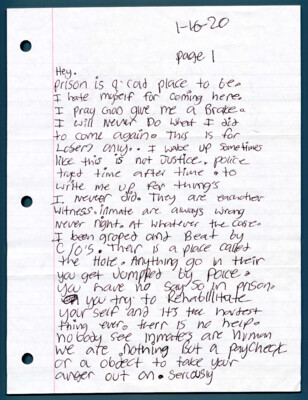 1-16-20
page 1
Hey.
prison is a cold place to be.
I hate myself for coming here.
I pray God give me a Brake.
I will Never Do what I did
to come again. This is for
Losers only.. I wake up sometimes
like this is not Justice. police
tryed time after time. to
write me up for things
I never did. They are eachother
witness. inmate are always wrong
never right. At whatever the case.
I been groped and Beat by
C/O'S. Their is a place called
the Hole. Anything go in their
you get Jumpped by police.
you have no say/so in prison.
you try to Rehabilitate
yourself and It's the hardest
thing ever. therr is no help.
nobody see inmates are human
we are nothing but a paycheck
or a object to take your
anger out on. Seriously